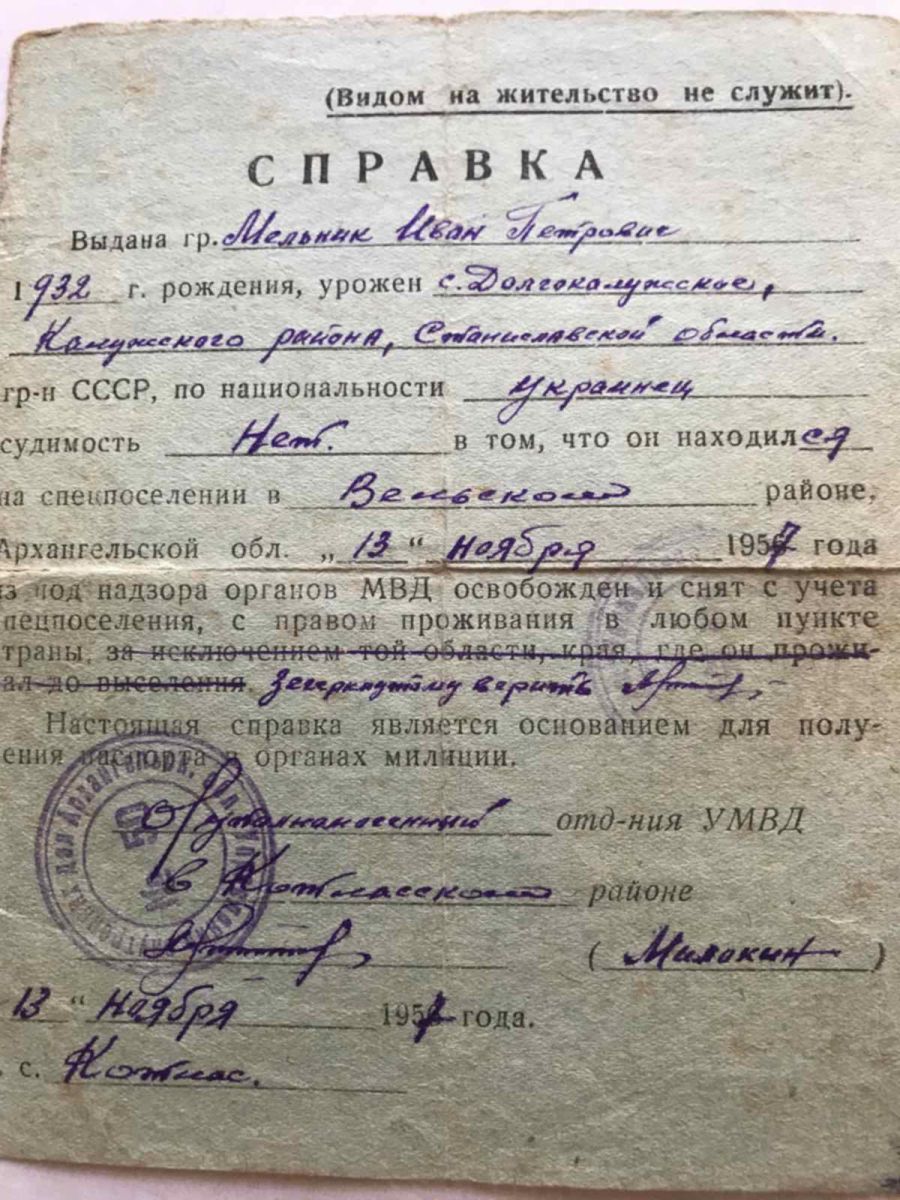 (Видом на жительство не служит).
СПРАВКА
Выдана гр. Мельник Иван Петрович
1932 г. рождения, урожен с. Долгокалужское,
Калужского района, Станиславской области.
гр-н СССР, по национальности украинец
судимость Нет. в том, что он находился
на спецпоселении в Вельском районе,
Архангельской обл. „13“ ноября 1957 года
из под надзора органов МВД освобожден и снят с учета
пецпоселения, с правом проживания в любом пункте
траны, за исключением той области, края, где он прожи-
ал до выселения. Зачеркнутому верить
Настоящая справка является основанием для полу-
ения паспорта в органах милиции.
Оперуполномоченный отд-ния УМВД
в Котласском районе
(Милокин)
13 “ ноября 1957 года.
. с. Котлас.